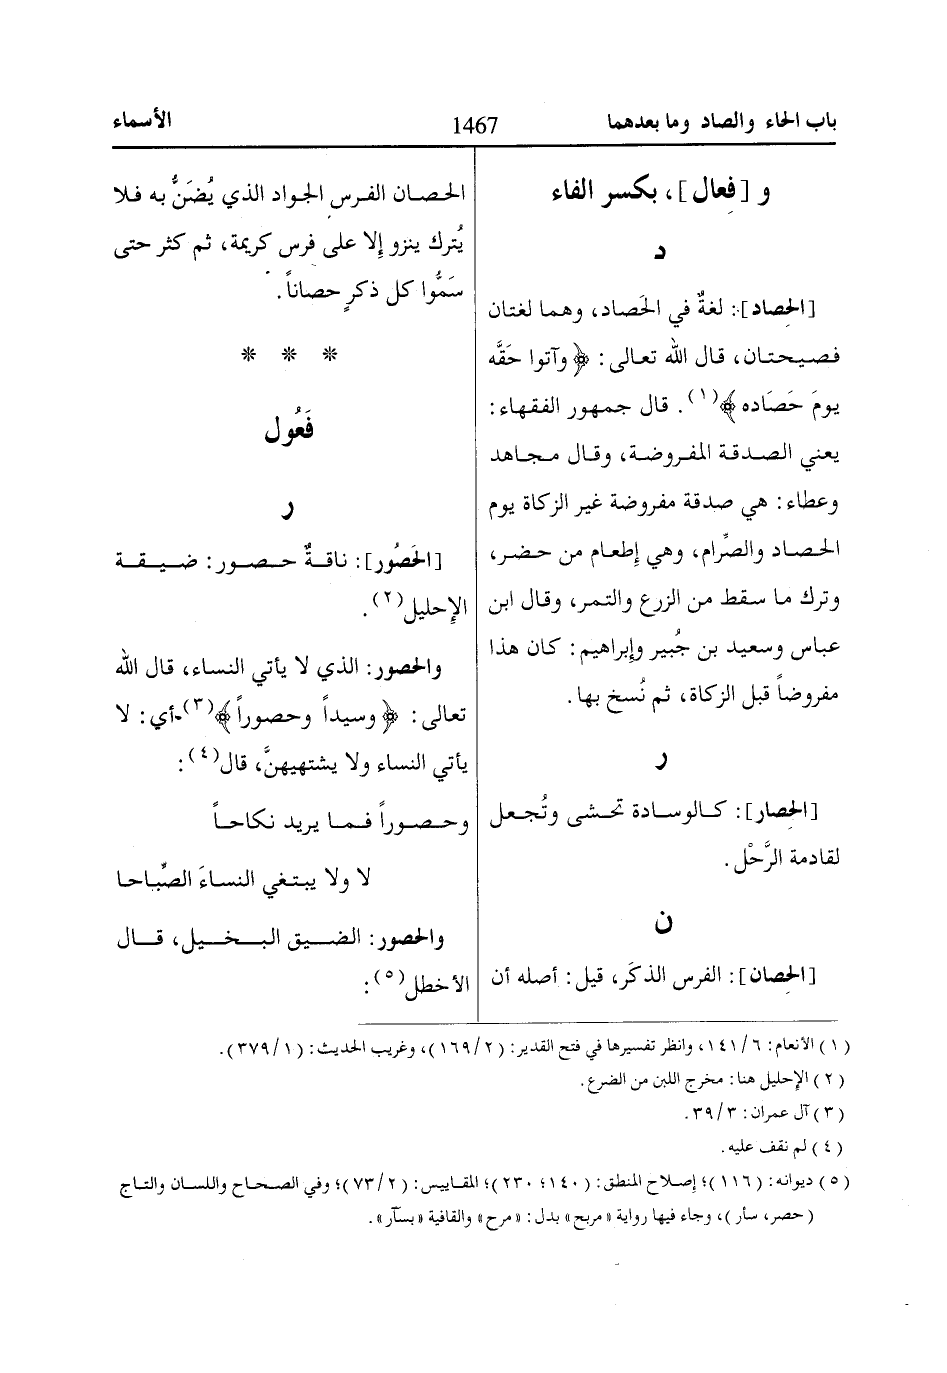 باب الحاء والصاد وما بعدهما
1467
الأسماء
و [فِعال]، بكسر الفاء
د
[الحِصاد]: لغةٌ في الحَصاد، وهما لغتان
فصيحتان، قال الله تعالى: ﴿وآتوا حَقَّه
يومَ حَصَاده﴾(١). قال جمهور الفقهاء:
يعني الصدقة المفروضة، وقال مجاهد
وعطاء: هي صدقة مفروضة غير الزكاة يوم
الحصاد والصِّرام، وهي إِطعام من حضر،
وترك ما سقط من الزرع والتمر، وقال ابن
عباس وسعيد بن جُبير وإِبراهيم: كان هذا
مفروضاً قبل الزكاة، ثم نُسخ بها.
ر
[الحِصار]: كالوسادة تحشى وتُجعل
لقادمة الرَّحْل.
ن
[الحِصان]: الفرس الذكَر، قيل: أصله أن
الحصان الفرس الجواد الذي يُضَنُّ به فلا
يُترك ينزو إِلا على فرس كريمة، ثم كثر حتى
سَمُّوا كل ذكرٍ حصاناً.
* * *
فَعُول
ر
[الحَصُور]: ناقةٌ حصور: ضيقة
الإِحليل(٢).
والحصور: الذي لا يأتي النساء، قال الله
تعالى: ﴿وسيداً وحصوراً﴾(٣) أي: لا
يأتي النساء ولا يشتهيهنَّ، قال(٤):
وحصوراً فما يريد نكاحاً
لا ولا يبتغي النساءَ الصِّباحا
والحصور: الضيق البخيل، قال
الأخطل(٥):
(١) الأنعام: ٦/ ١٤١، وانظر تفسيرها في فتح القدير: (٢/ ١٦٩)، وغريب الحديث: (١/ ٣٧٩).
(٢) الإِحليل هنا: مخرج اللبن من الضرع.
(٣) آل عمران: ٣/ ٣٩.
(٤) لم نقف عليه.
(٥) ديوانه: (١١٦)؛ إِصلاح المنطق: (١٤٠؛ ٢٣٠)؛ المقاييس: (٢/ ٧٣)؛ وفي الصحاح واللسان والتاج
(حصر، سأر)، وجاء فيها رواية «مربح» بدل: «مرح» والقافية «بسآر».